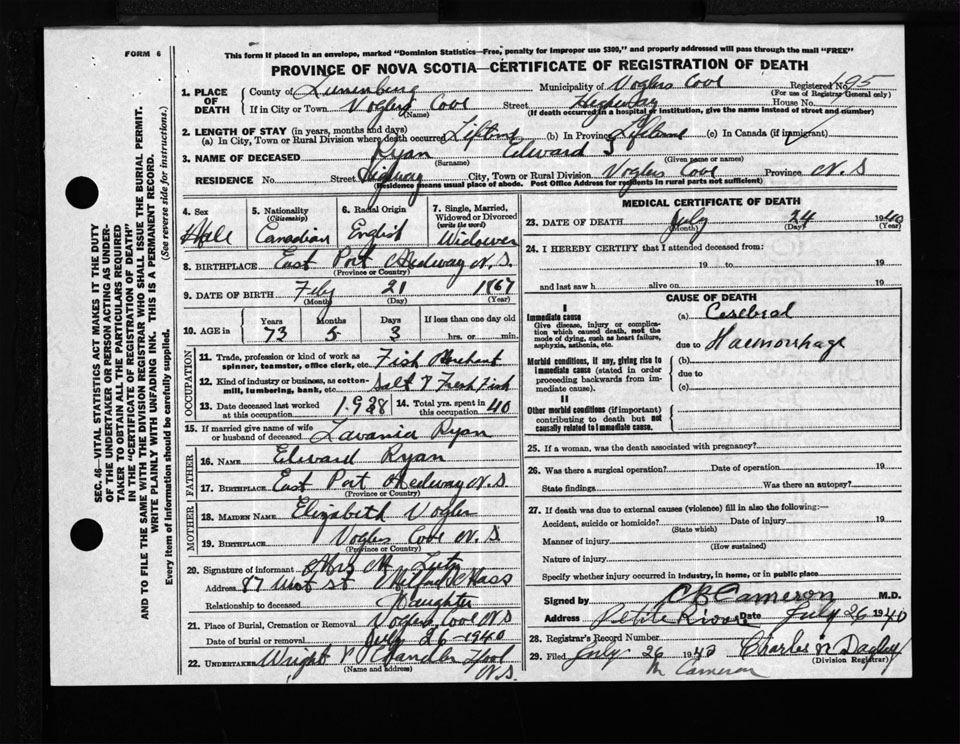 FORM 6
This form if placed in an envelope, marked "Dominion Statistics—Free, penalty for improper use $300," and properly addressed will pass through the mail "FREE"
PROVINCE OF NOVA SCOTIA—CERTIFICATE OF REGISTRATION OF DEATH
1. PLACE OF DEATH
County of Lunenburg Municipality of Voglers Cove Registered No. 195
(For use of Registrar General only)
If in City or Town Voglers Cove Street Highway House No.
(Name) (If death occurred in a hospital or institution, give the name instead of street and number)
2. LENGTH OF STAY (in years, months and days)
(a) In City, Town or Rural Division where death occurred Lifetime (b) In Province Lifetime (c) In Canada (if immigrant)
3. NAME OF DECEASED Ryan Edward S
(Surname) (Given name or names)
RESIDENCE No. Street Highway City, Town or Rural Division Voglers Cove Province N S
(Residence means usual place of abode. Post Office Address for residents in rural parts not sufficient)
4. Sex Male
5. Nationality (Citizenship) Canadian
6. Racial Origin English
7. Single, Married, Widowed or Divorced (write the word) Widower
8. BIRTHPLACE East Port Medway N.S.
(Province or Country)
9. DATE OF BIRTH Feby 21 1867
(Month) (Day) (Year)
10. AGE in Years Months Days If less than one day old
73 5 3 hrs. or min.
OCCUPATION
11. Trade, profession or kind of work as spinner, teamster, office clerk, etc. Fish Merchant
12. Kind of industry or business, as cotton-mill, lumbering, bank, etc. Salt & Fresh Fish
13. Date deceased last worked at this occupation 1938
14. Total yrs. spent in this occupation 40
15. If married give name of wife or husband of deceased Lavania Ryan
FATHER
16. NAME Edward Ryan
17. BIRTHPLACE East Port Medway N.S
(Province or Country)
MOTHER
18. MAIDEN NAME Elizabeth Vogler
19. BIRTHPLACE Voglers Cove N.S.
(Province or Country)
20. Signature of informant Mrs M
Address 87 West St Milford Mass
Relationship to deceased Daughter
21. Place of Burial, Cremation or Removal Voglers Cove N S
Date of burial or removal July 26 - 1940
22. UNDERTAKER Wright Chandler
(Name and address) N.S.
MEDICAL CERTIFICATE OF DEATH
23. DATE OF DEATH July 24 1940
(Month) (Day) (Year)
24. I HEREBY CERTIFY that I attended deceased from:
19 to 19
and last saw h alive on 19
CAUSE OF DEATH
I
Immediate cause
Give disease, injury or complication which caused death, not the mode of dying, such as heart failure, asphyxia, asthenia, etc.
(a) Cerebral
due to Haemorrhage
Morbid conditions, if any, giving rise to immediate cause (stated in order proceeding backwards from immediate cause).
(b)
due to
(c)
II
Other morbid conditions (if important) contributing to death but not causally related to immediate cause.
25. If a woman, was the death associated with pregnancy?
26. Was there a surgical operation? Date of operation 19
State findings Was there an autopsy?
27. If death was due to external causes (violence) fill in also the following:—
Accident, suicide or homicide? Date of injury 19
(State which)
Manner of injury
(How sustained)
Nature of injury
Specify whether injury occurred in industry, in home, or in public place
Signed by C B Cameron M.D.
Address Petite Riviere Date July 26 1940
28. Registrar's Record Number
29. Filed July 26 1940 Charles
(Division Registrar)
M Cameron
SEC. 46—VITAL STATISTICS ACT MAKES IT THE DUTY OF THE UNDERTAKER OR PERSON ACTING AS UNDERTAKER TO OBTAIN ALL THE PARTICULARS REQUIRED IN THE "CERTIFICATE OF REGISTRATION OF DEATH" AND TO FILE THE SAME WITH THE DIVISION REGISTRAR WHO SHALL ISSUE THE BURIAL PERMIT.
WRITE PLAINLY WITH UNFADING INK. THIS IS A PERMANENT RECORD.
Every item of information should be carefully supplied. (See reverse side for instructions.)